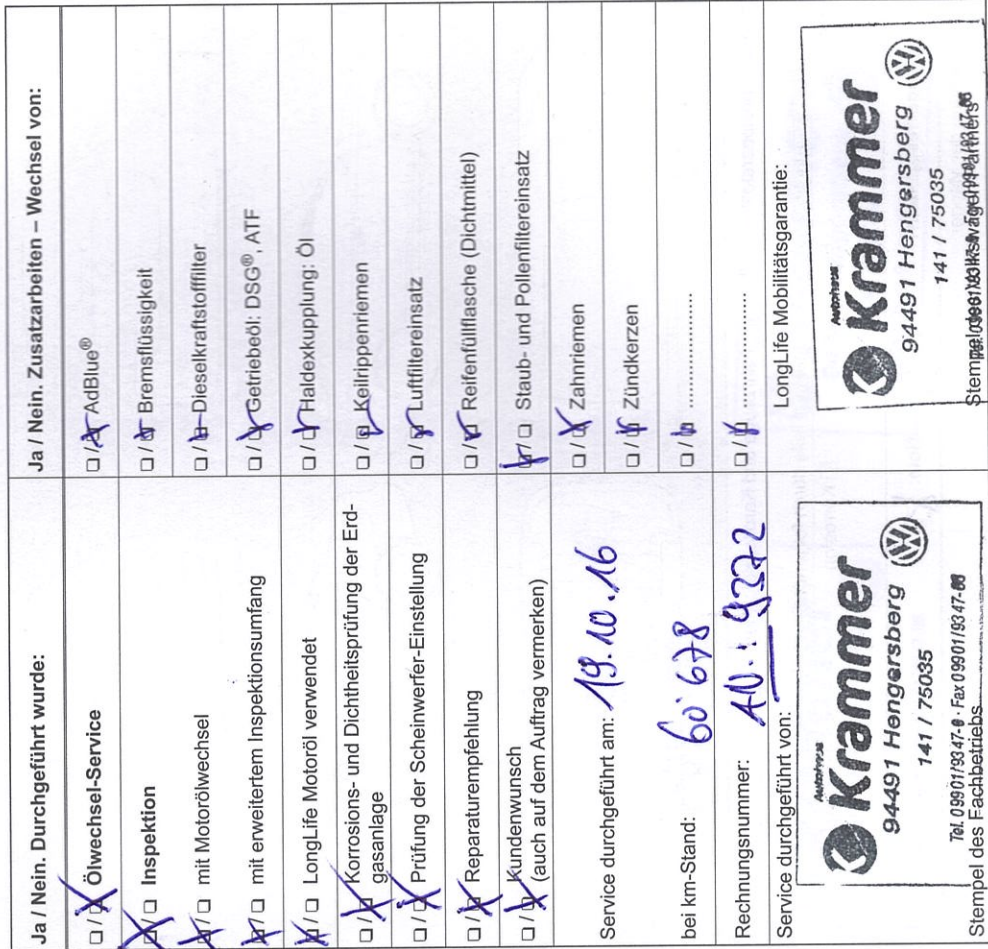 Ja / Nein. Durchgeführt wurde:
□ / □ Ölwechsel-Service
□ / □ Inspektion
□ / □ mit Motorölwechsel
□ / □ mit erweitertem Inspektionsumfang
□ / □ LongLife Motoröl verwendet
□ / □ Korrosions- und Dichtheitsprüfung der Erd-
gasanlage
□ / □ Prüfung der Scheinwerfer-Einstellung
□ / □ Reparaturempfehlung
□ / □ Kundenwunsch
(auch auf dem Auftrag vermerken)
Service durchgeführt am: 19.10.16
bei km-Stand: 60'678
Rechnungsnummer: AN.: 9372
Service durchgeführt von:
Autohaus
Krammer
94491 Hengersberg
141 / 75035
Tel. 09901/9347-0 · Fax 09901/9347-66
Stempel des Fachbetriebs
Ja / Nein. Zusatzarbeiten – Wechsel von:
□ / □ AdBlue®
□ / □ Bremsflüssigkeit
□ / □ Dieselkraftstofffilter
□ / □ Getriebeöl: DSG®, ATF
□ / □ Haldexkupplung: Öl
□ / □ Keilrippenriemen
□ / □ Luftfiltereinsatz
□ / □ Reifenfüllflasche (Dichtmittel)
□ / □ Staub- und Pollenfiltereinsatz
□ / □ Zahnriemen
□ / □ Zündkerzen
□ / □ ....................
□ / □ ....................
LongLife Mobilitätsgarantie:
Autohaus
Krammer
94491 Hengersberg
141 / 75035
Stempel des Volkswagen Partners